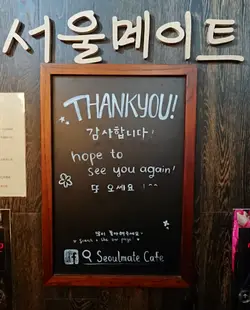 서울메이트
THANKYOU!
감사합니다!
hope to
see you again!
또 오세요!^^
많이 좋아해주세요!
f Seoulmate Cafe